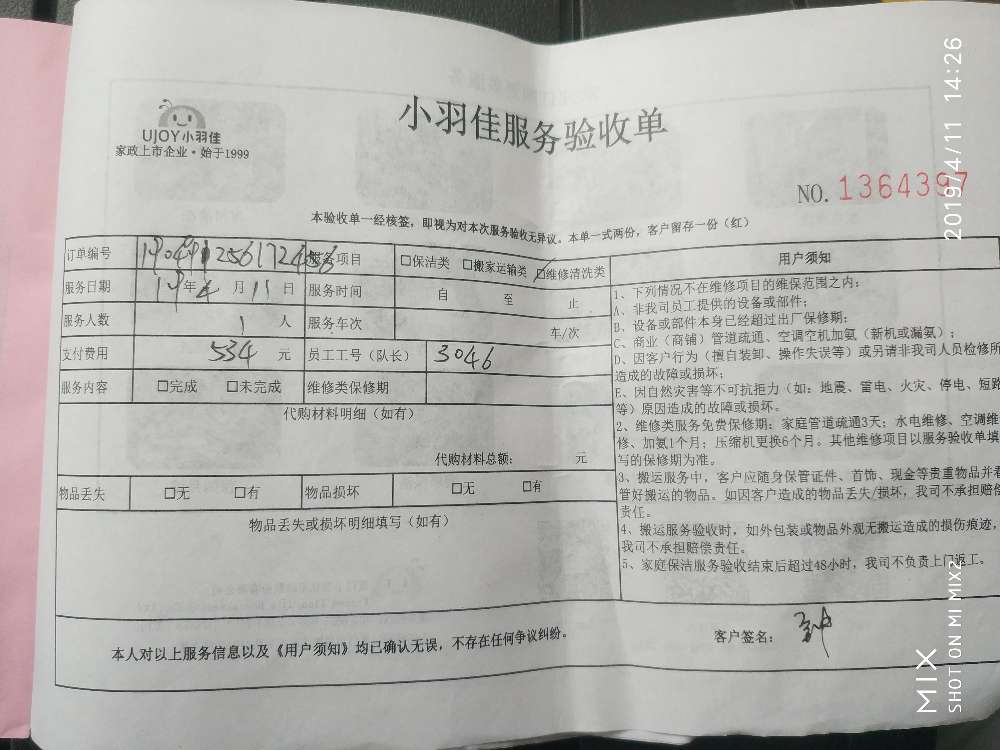 UJOY小羽佳
家政上市企业·始于1999
小羽佳服务验收单
NO. 1364397
本验收单一经核签，即视为对本次服务验收无异议。本单一式两份，客户留存一份（红）
订单编号 服务项目 □保洁类 □搬家运输类 □维修清洗类
服务日期 19年4月11日 服务时间 自 至 止
服务人数 1人 服务车次 车/次
支付费用 534 元 员工工号（队长） 3046
服务内容 □完成 □未完成 维修类保修期
代购材料明细（如有）
代购材料总额： 元
物品丢失 □无 □有 物品损坏 □无 □有
物品丢失或损坏明细填写（如有）
用户须知
1、下列情况不在维修项目的维保范围之内：
A、非我司员工提供的设备或部件；
B、设备或部件本身已经超过出厂保修期；
C、商业（商铺）管道疏通、空调空机加氨（新机或漏氨）；
D、因客户行为（擅自装卸、操作失误等）或另请非我司人员检修所
造成的故障或损坏；
E、因自然灾害等不可抗拒力（如：地震、雷电、火灾、停电、短路
等）原因造成的故障或损坏。
2、维修类服务免费保修期：家庭管道疏通3天；水电维修、空调维
修、加氨1个月；压缩机更换6个月。其他维修项目以服务验收单填
写的保修期为准。
3、搬运服务中，客户应随身保管证件、首饰、现金等贵重物品并看
管好搬运的物品。如因客户造成的物品丢失/损坏，我司不承担赔偿
责任。
4、搬运服务验收时，如外包装或物品外观无搬运造成的损伤痕迹，
我司不承担赔偿责任。
5、家庭保洁服务验收结束后超过48小时，我司不负责上门返工。
本人对以上服务信息以及《用户须知》均已确认无误，不存在任何争议纠纷。
客户签名：
2019/4/11 14:26
MIX
SHOT ON MI MIX2